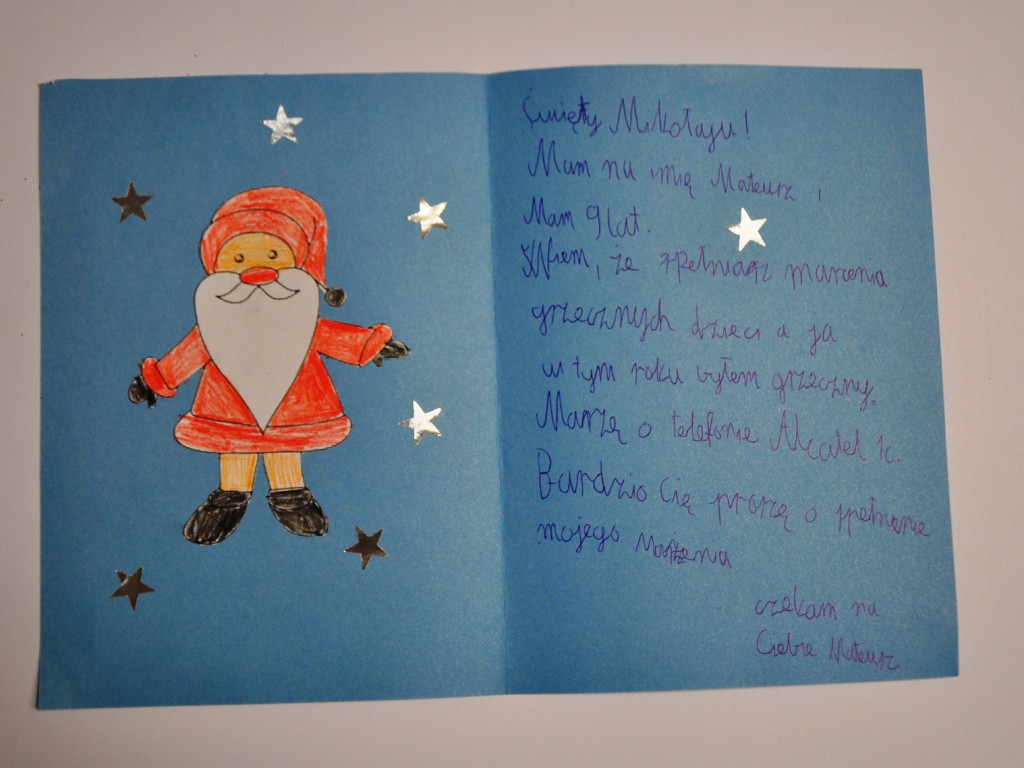 Święty Mikołaju!
Mam na imię Mateusz i
Mam 9 lat.
Wiem, że spełniasz marzenia
grzecznych dzieci a ja
w tym roku byłem grzeczny.
Marzę o telefonie Alcatel 1c.
Bardzo Cię proszę o spełnienie
mojego Marzenia
czekam na
Ciebie Mateusz